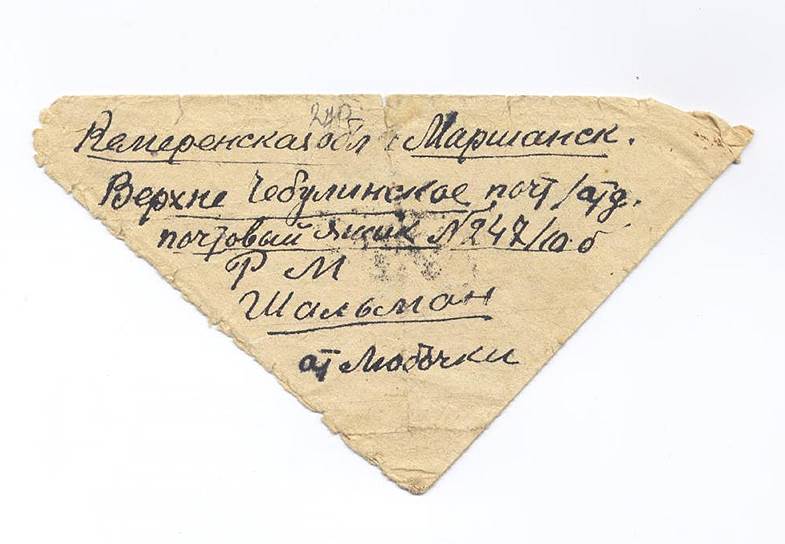 Кемеренская обл г Маршанск.
Верхне Чебулинское почт/отд.
почтовый ящик №247/10 б
Р М
Шальман
от Любочки